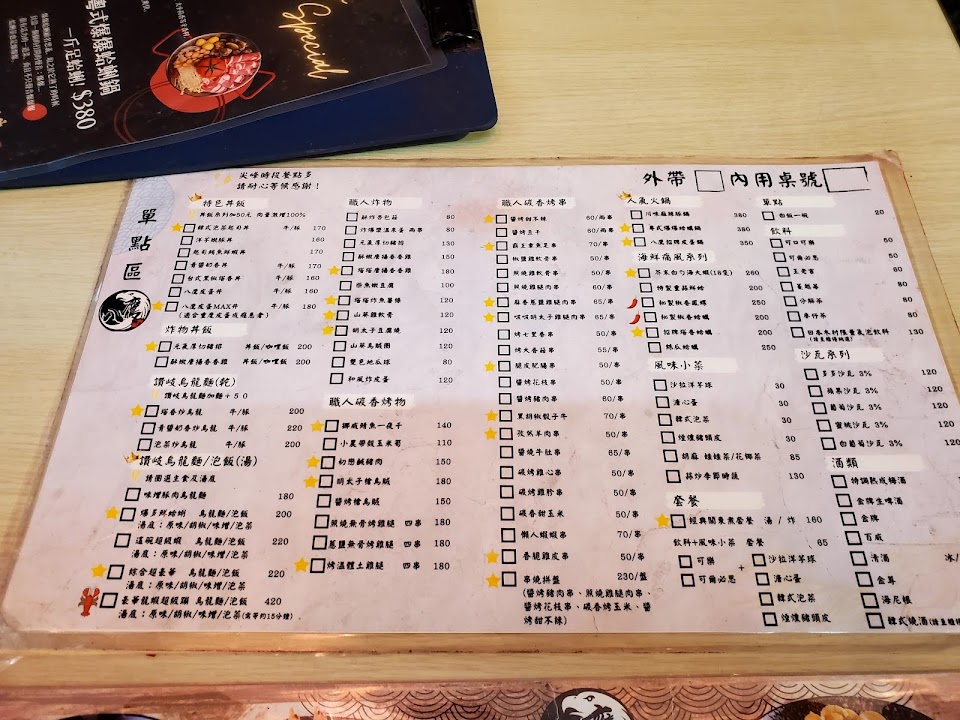 Special
粵式爆爆蛤蜊鍋
一斤足蛤蜊! $380
尖峰時段餐點多
請耐心等候感謝!
外帶
內用桌號
單點區
特色丼飯
丼飯系列加50元 肉量激增100%
韓式泡菜起司丼 牛/豚 170
洋蔥嫩豚丼 160
起司鮪魚鮮蝦丼 160
青醬奶香丼 牛/豚 170
台式黑椒塔香丼 牛/豚 160
八度皮蛋丼 牛/豚 160
八度皮蛋MAX丼 牛/豚 180
(適合重度皮蛋成癮患者)
炸物丼飯
元氣厚切豬排 丼飯/咖哩飯 200
酥嫩唐揚香香雞 丼飯/咖哩飯 200
讚岐烏龍麵(乾)
讚岐烏龍麵加麵+50
塔香炒烏龍 牛/豚 200
青醬奶香炒烏龍 牛/豚 220
泡菜炒烏龍 牛/豚 200
讚岐烏龍麵/泡飯(湯)
請圈選主食及湯底
味增豚肉烏龍麵 180
爆多鮮蛤蜊 烏龍麵/泡飯 200
湯底:原味/胡椒/味增/泡菜
這碗超級蝦 烏龍麵/泡飯 220
湯底:原味/胡椒/味增/泡菜
綜合超豪華 烏龍麵/泡飯 220
湯底:原味/胡椒/味增/泡菜
豪華龍蝦超級蹦 烏龍麵/泡飯 420
湯底:原味/胡椒/味增/泡菜(需等約15分鐘)
職人炸物
酥炸杏包菇 80
炸爆漿溫泉蛋 兩串 80
元氣厚切豬排 130
酥嫩唐揚香香雞 160
塔塔唐揚香香雞 180
柴魚嫩豆腐 80
塔塔炸魚薯條 120
山葵雞軟骨 120
明太子豆腐燒 120
山葵烏賊圈 120
雙色地瓜球 80
和風炸皮蛋 120
職人碳香烤物
挪威鯖魚一夜干 140
小農帶殼玉米筍 110
初戀鹹豬肉 150
明太子槍烏賊 180
鹽烤槍烏賊 150
照燒無骨烤雞腿 四串 180
蔥鹽無骨烤雞腿 四串 180
烤溫體土雞腿 四串 180
職人碳香烤串
醬烤甜不辣 60/兩串
醬烤豆干 60/兩串
霸王章魚足串 70/串
椒鹽雞軟骨串 60/串
照燒雞軟骨串 60/串
照燒雞腿肉串 60/串
麻香蔥鹽雞腿肉串 65/串
啵啵明太子雞腿肉串 65/串
烤七里香串 50/串
烤大香菇串 55/串
脆皮肥腸串 50/串
醬烤花枝串 50/串
醬烤豬肉串 60/串
黑胡椒骰子牛 70/串
孜然羊肉串 50/串
醬燒牛肚串 65/串
碳烤雞心串 50/串
碳烤雞胗串 50/串
碳香甜玉米 50/串
懶人蝦蝦串 70/串
香脆雞皮串 50/串
串燒拼盤 230/盤
(醬烤豬肉串、照燒雞腿肉串、
醬烤花枝串、碳香烤玉米、醬
烤甜不辣)
人氣火鍋
川味麻辣豚鍋 380
粵式爆爆蛤蠣鍋 380
八度招牌皮蛋鍋 350
海鮮痛風系列
芥末白灼海大蝦(16隻) 260
特製重蒜鮮蛤 200
秘製椒香鳳螺 250
秘製椒香蛤蠣 200
招牌塔香蛤蠣 200
絲瓜蛤蠣 250
風味小菜
沙拉洋芋球 30
溏心蛋 30
韓式泡菜 30
煙燻豬頭皮 30
胡麻 娃娃菜/花椰菜 85
蒜炒季節時蔬 130
套餐
經典關東煮套餐 湯 / 炸 160
飲料+風味小菜 套餐 65
可樂
可爾必思
+
沙拉洋芋球
溏心蛋
韓式泡菜
煙燻豬頭皮
單點
白飯一碗 20
飲料
可口可樂 50
可爾必思 50
芬解茶 80
麥仔茶 80
日本木村限量氣泡飲料 130
沙瓦系列
多多沙瓦 3% 120
蘋果沙瓦 3% 120
葡萄沙瓦 3% 120
蜜桃沙瓦 3% 120
白葡萄沙瓦 3% 120
酒類
特調熱或梅酒
金牌生啤酒
金牌
百威
清酒 冰/
金尊
海尼根
韓式燒酒